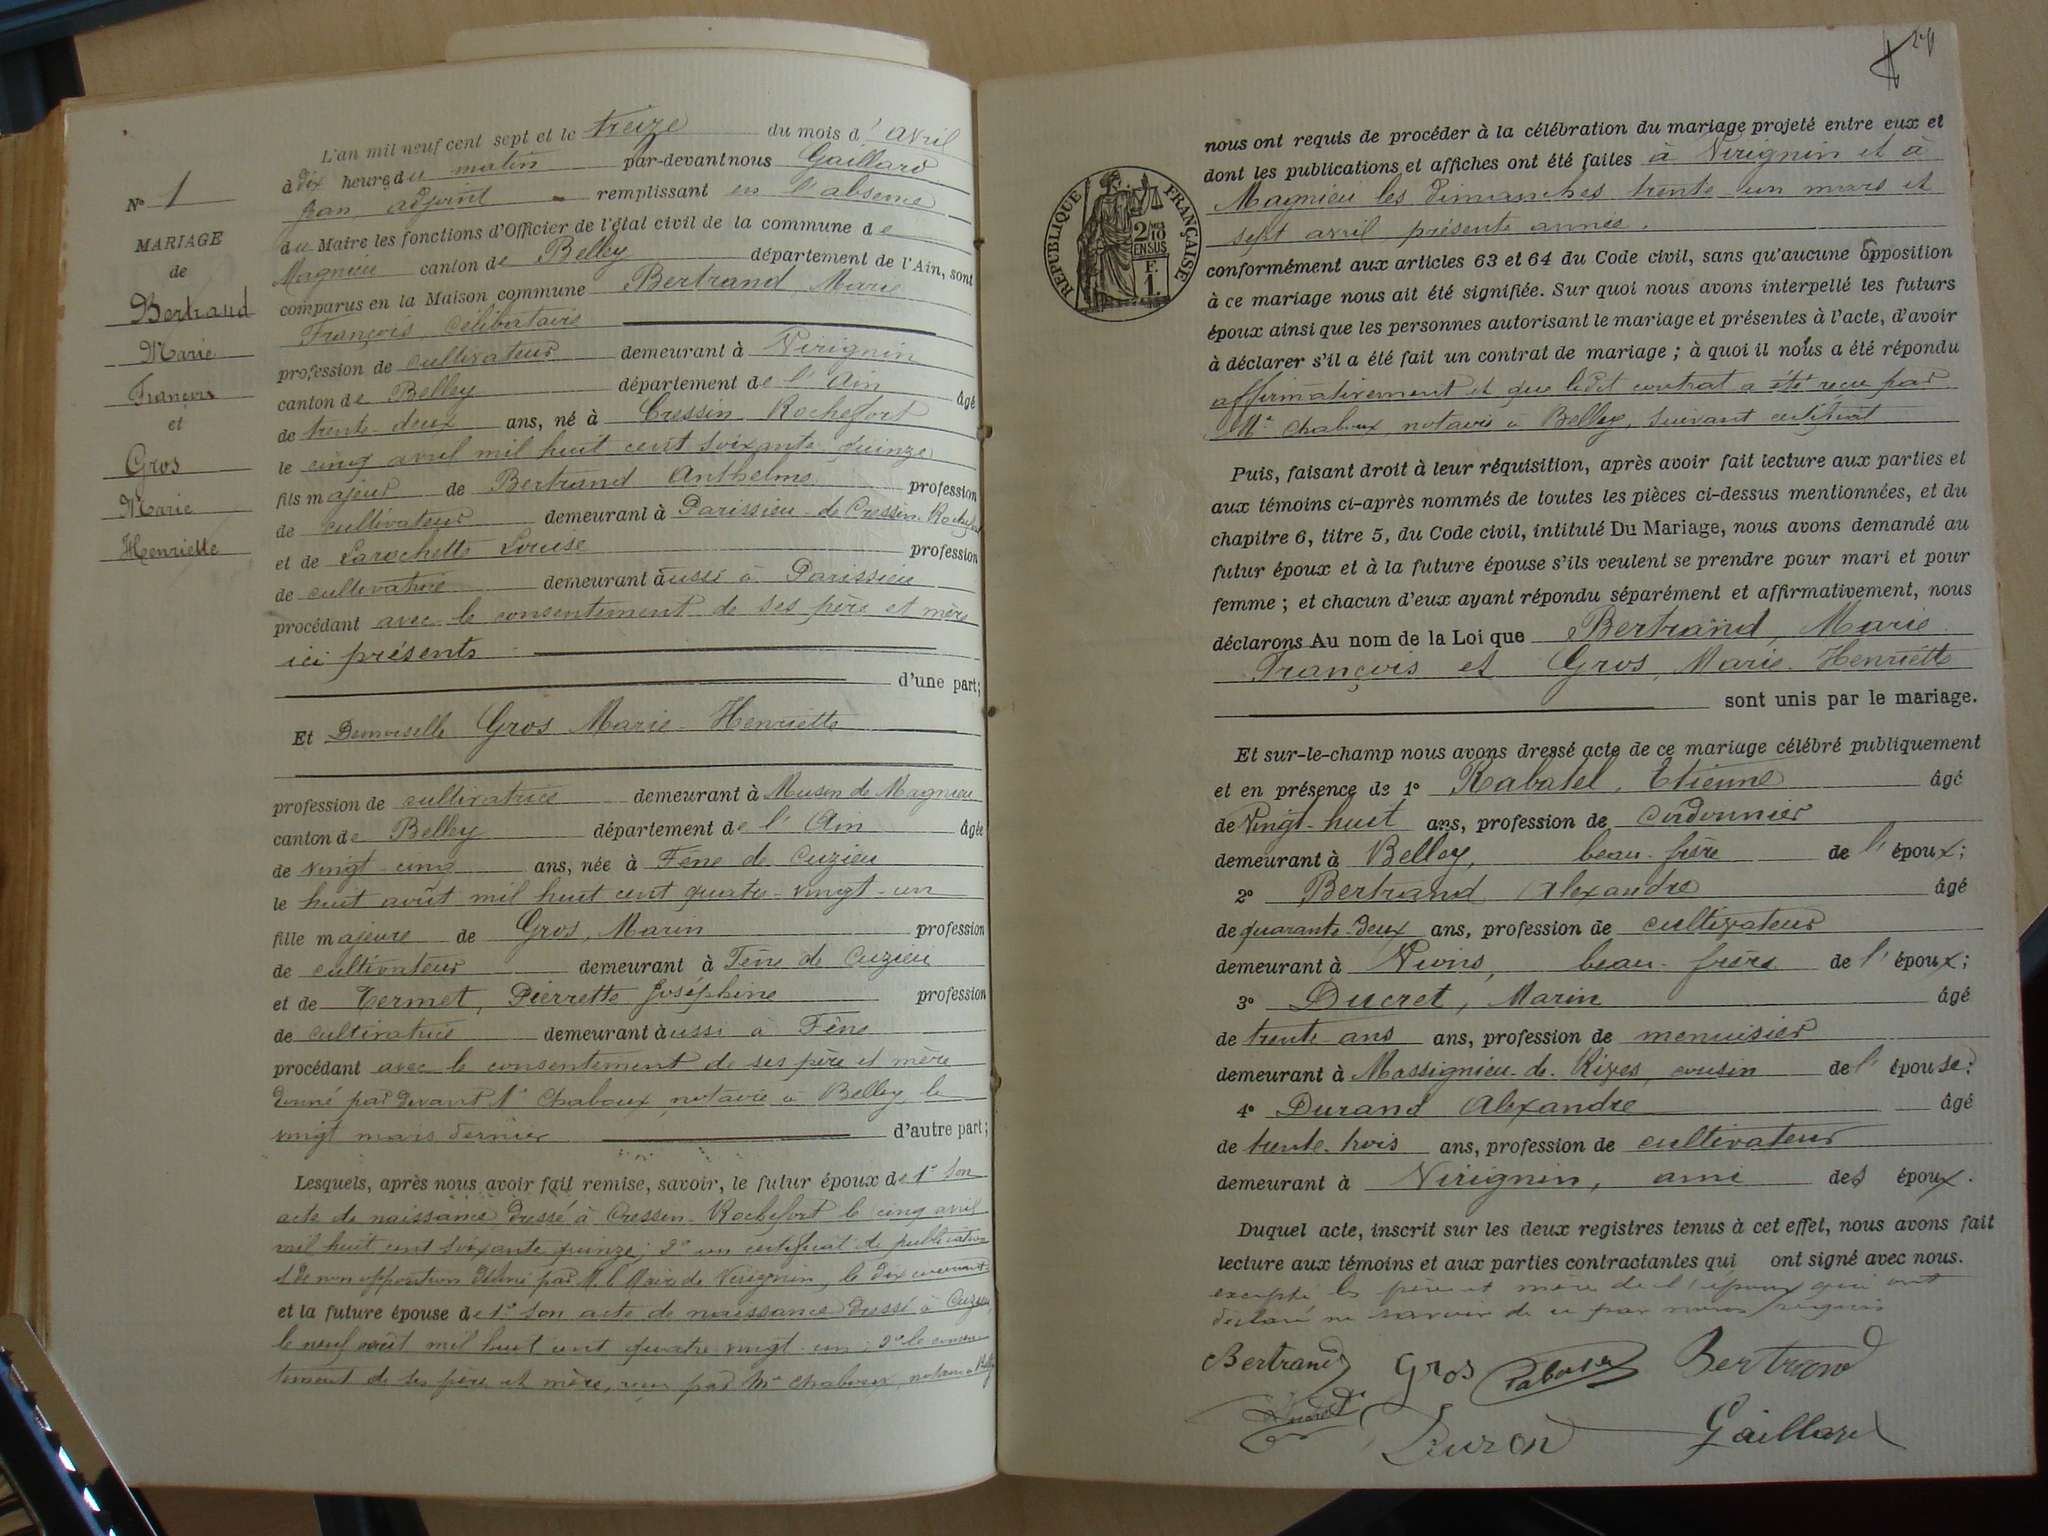 Nº 1
MARIAGE
de
Bertrand
Marie
François
et
Gros
Marie
Henriette
L'an mil neuf cent sept et le treize du mois d'avril
à dix heures du matin par-devant nous Gaillard
Jean, adjoint remplissant en l'absence
du Maire les fonctions d'Officier de l'état civil de la commune de
Magnieu canton de Belley département de l'Ain, sont
comparus en la Maison commune Bertrand, Marie
François, célibataire
profession de cultivateur demeurant à Virignin
canton de Belley département de l'Ain âgé
de trente-deux ans, né à Cressin-Rochefort
le cinq avril mil huit cent soixante-quinze
fils majeur de Bertrand Anthelme profession
de cultivateur demeurant à Parissieu de Cressin-Rochefort
et de Larochette Louise profession
de cultivatrice demeurant aussi à Parissieu
procédant avec le consentement de ses père et mère
ici présents
d'une part;
Et Demoiselle Gros Marie-Henriette
profession de cultivatrice demeurant à Musin de Magnieu
canton de Belley département de l'Ain âgée
de vingt-cinq ans, née à Fène de Cuzieu
le huit août mil huit cent quatre-vingt-un
fille majeure de Gros, Marin profession
de cultivateur demeurant à Fène de Cuzieu
et de Termet, Pierrette Joséphine profession
de cultivatrice demeurant aussi à Fène
procédant avec le consentement de ses père et mère
donné par devant Me Chaboux notaire à Belley le
vingt mars dernier d'autre part;
Lesquels, après nous avoir fait remise, savoir, le futur époux de 1º son
acte de naissance dressé à Cressin-Rochefort le cinq avril
mil huit cent soixante quinze; 2º un certificat de publication
et de non opposition délivré par M. le Maire de Virignin, le dix courant
et la future épouse de 1º son acte de naissance dressé à Cuzieu
le neuf août mil huit cent quatre-vingt-un; 2º le consen-
tement de ses père et mère, reçu par Me Chaboux, notaire à Belley
REPUBLIQUE FRANÇAISE
2/10
EN SUS
F.
1.
nous ont requis de procéder à la célébration du mariage projeté entre eux et
dont les publications et affiches ont été faites à Virignin et à
Magnieu les dimanches trente un mars et
sept avril, présente année.
conformément aux articles 63 et 64 du Code civil, sans qu'aucune opposition
à ce mariage nous ait été signifiée. Sur quoi nous avons interpellé les futurs
époux ainsi que les personnes autorisant le mariage et présentes à l'acte, d'avoir
à déclarer s'il a été fait un contrat de mariage; à quoi il nous a été répondu
affirmativement et que ledit contrat a été reçu par
Me Chaboux, notaire à Belley, suivant certificat
Puis, faisant droit à leur réquisition, après avoir fait lecture aux parties et
aux témoins ci-après nommés de toutes les pièces ci-dessus mentionnées, et du
chapitre 6, titre 5, du Code civil, intitulé Du Mariage, nous avons demandé au
futur époux et à la future épouse s'ils veulent se prendre pour mari et pour
femme; et chacun d'eux ayant répondu séparément et affirmativement, nous
déclarons Au nom de la Loi que Bertrand, Marie
François et Gros, Marie-Henriette
sont unis par le mariage.
Et sur-le-champ nous avons dressé acte de ce mariage célébré publiquement
et en présence de 1º Rabatel, Etienne âgé
de vingt-huit ans, profession de cordonnier
demeurant à Belley, beau-frère de l'époux;
2º Bertrand Alexandre âgé
de quarante-deux ans, profession de cultivateur
demeurant à beau-frère de l'époux;
3º Ducret, Marin âgé
de trente ans ans, profession de menuisier
demeurant à Massignieu-de-Rives, cousin de l'épouse;
4º Durand Alexandre âgé
de trente-trois ans, profession de cultivateur
demeurant à Virignin, ami des époux.
Duquel acte, inscrit sur les deux registres tenus à cet effet, nous avons fait
lecture aux témoins et aux parties contractantes qui ont signé avec nous.
excepté les père et mère de l'époux qui ont
déclaré ne savoir de ce par nous requis
Bertrand Gros Rabatel Bertrand
Ducret Duran Gaillard